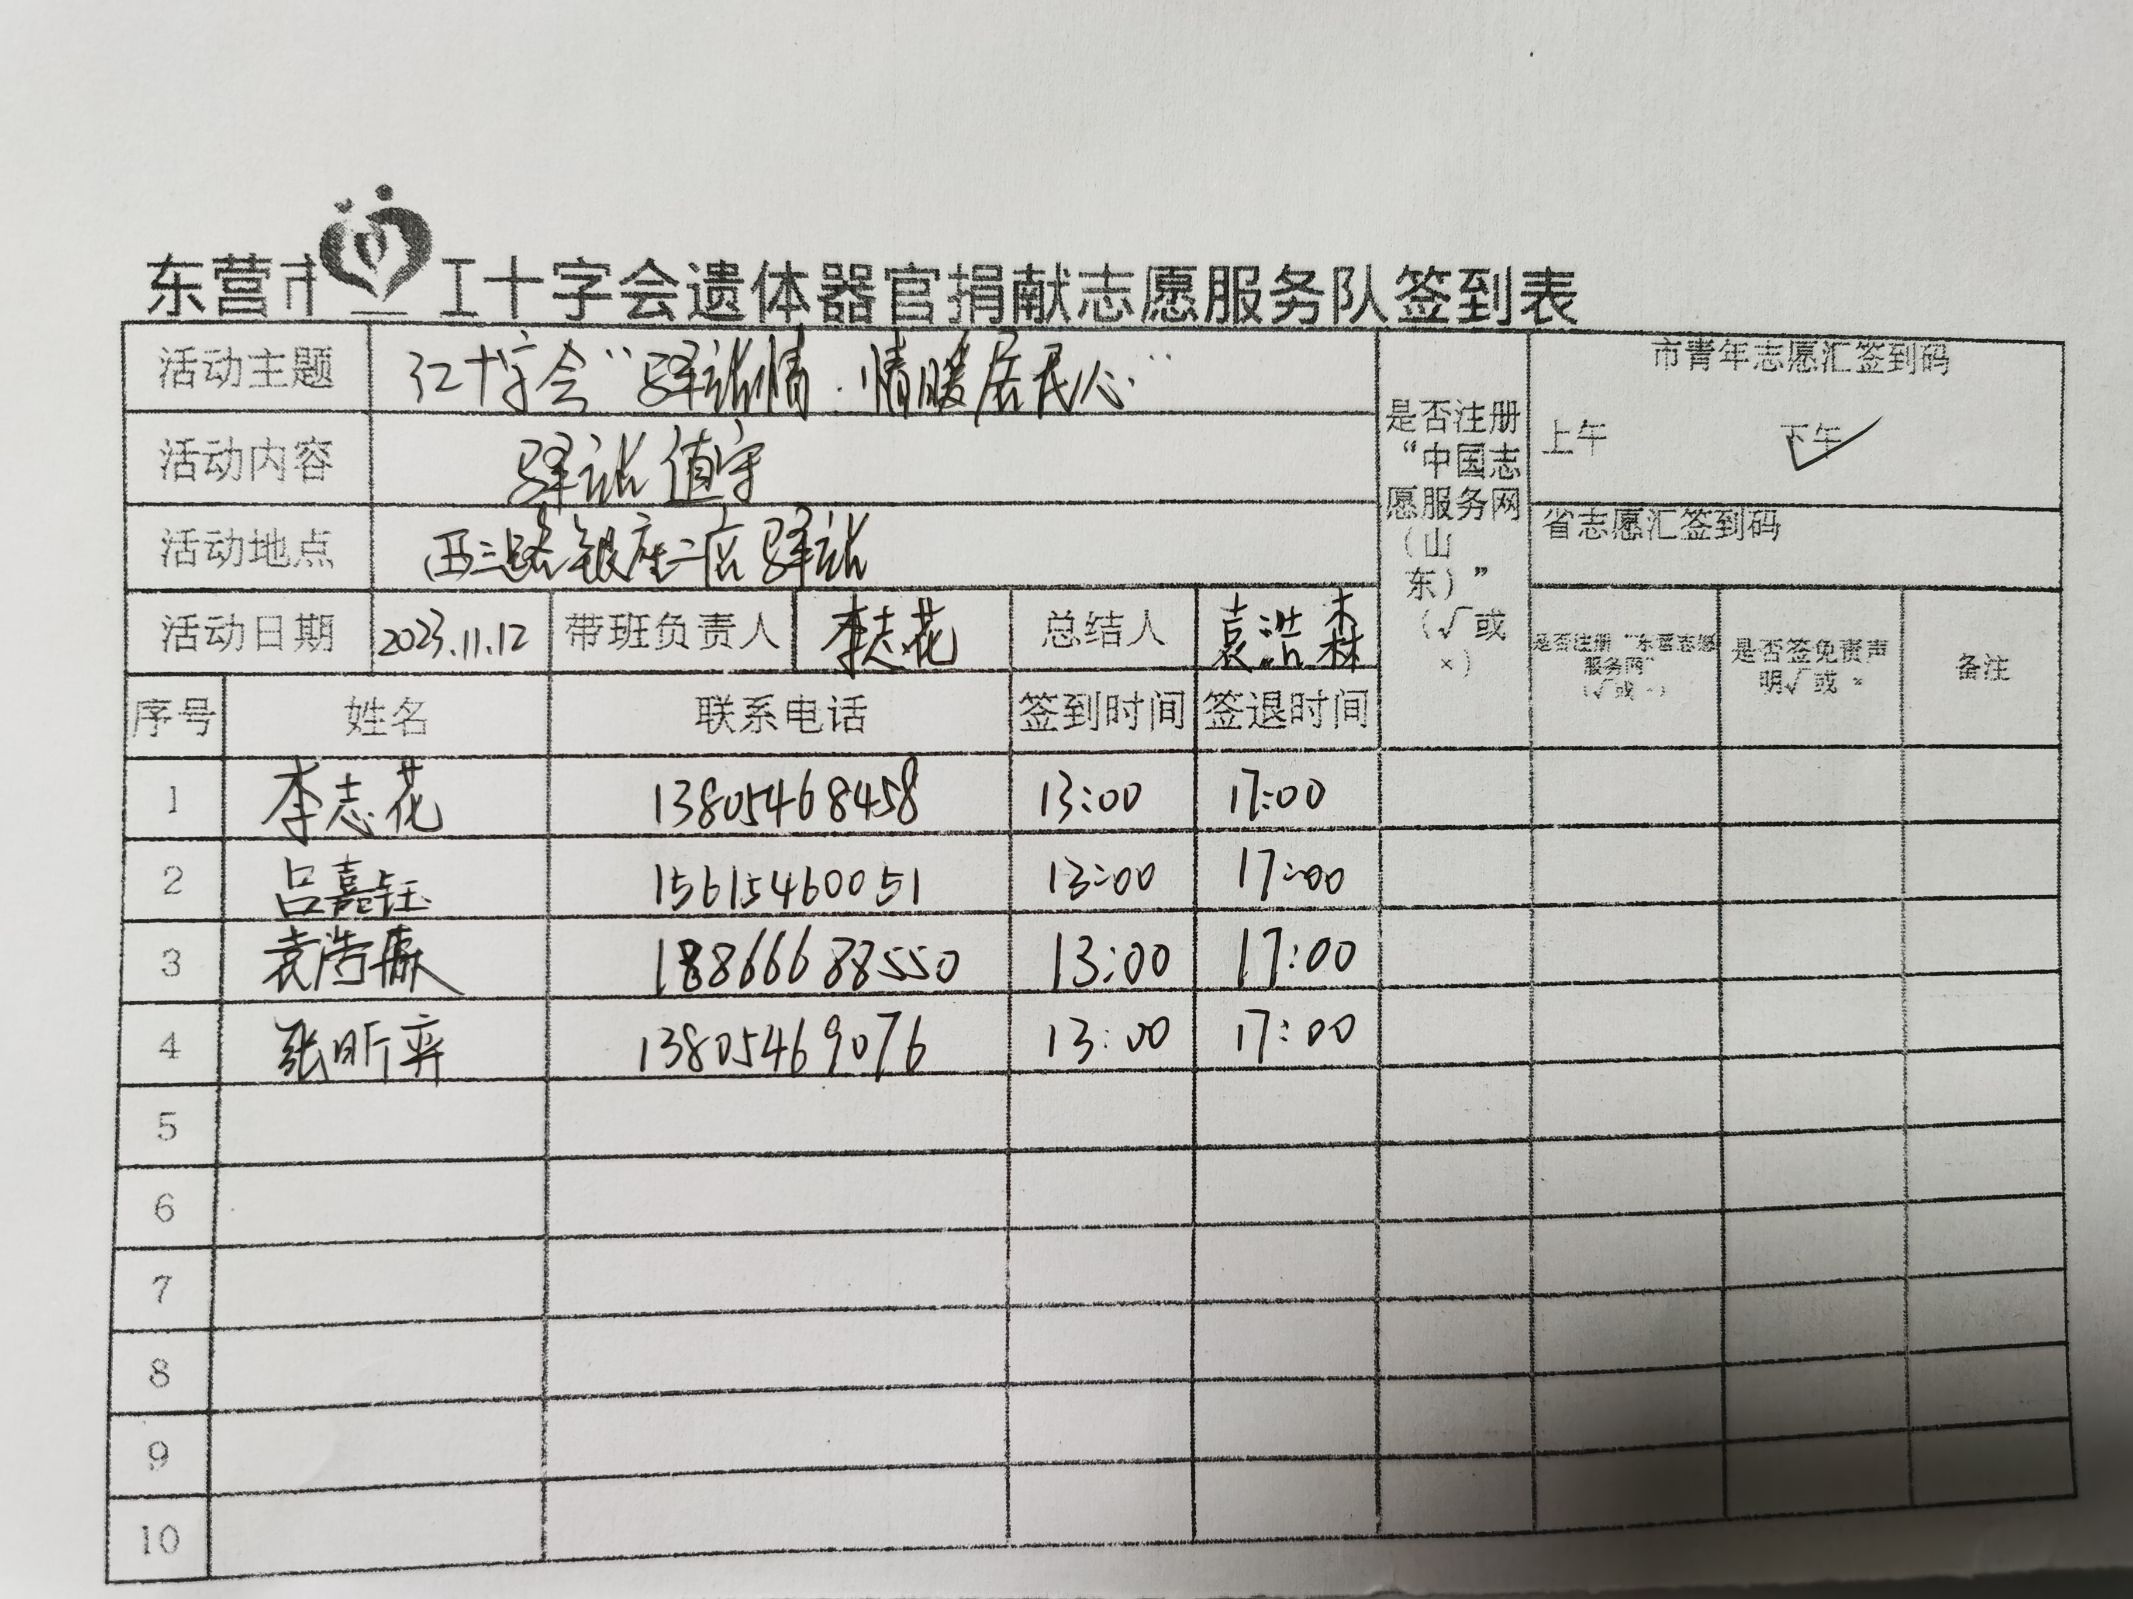 东营市 红十字会遗体器官捐献志愿服务队签到表
活动主题 红十字会“驿站情·情暖居民心”
活动内容 驿站值守
活动地点 西三路银座二店驿站
是否注册“中国志愿服务网（山东）”（√或×）
市青年志愿汇签到码
上午 下午 ✓
省志愿汇签到码
活动日期 2023.11.12 带班负责人 李志花 总结人 袁浩森
是否注册“东营志愿服务网”（√或×） 是否签免责声明√或× 备注
序号 姓名 联系电话 签到时间 签退时间
1 李志花 13805468458 13:00 17:00
2 吕嘉钰 15615460051 13:00 17:00
3 袁浩森 18866688550 13:00 17:00
4 张昕弈 13805469076 13:00 17:00
5
6
7
8
9
10